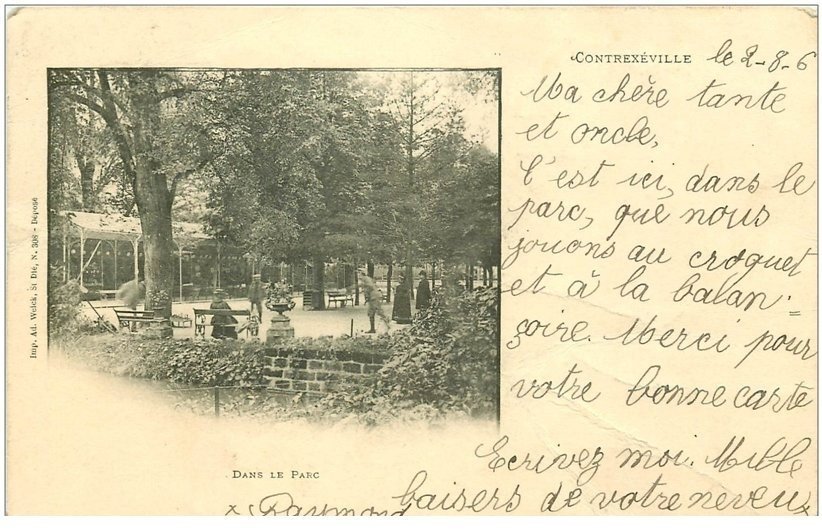 CONTREXÉVILLE le 2-8-6
Ma chère tante
et oncle,
C'est ici, dans le
parc, que nous
jouons au croquet
et à la balan-
çoire. Merci pour
votre bonne carte
Ecrivez moi. Mille
baisers de votre neveu
x Raymond
DANS LE PARC
Imp. Ad. Weick, St Dié, N. 308 - Déposé